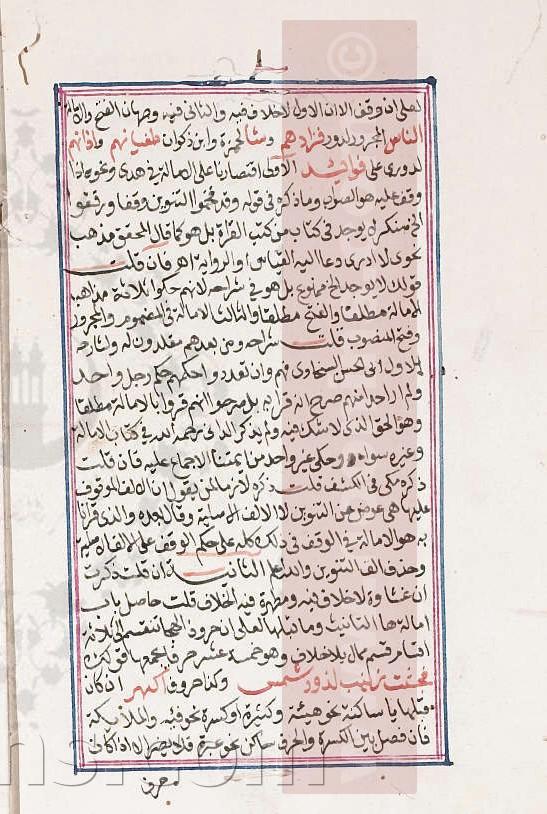 لعلى ان وقف الا ان الاول لا خلاف فيه والثانى فيه وجهان الفتح والامالة
الناس المجرور لدور فزادهم وشا لحمزة وابن ذكوان طغيانهم واذانهم
لدورى على فوائد الاولى اقتصارنا على الامالة فى هدى ونحوه اذا
وقف عليه هو الصواب وما ذكره فى قوله وقد فخموا التنوين وقفا ورققوا
الخ منكر لا يوجد فى كتاب من كتب القراءة بل هو كما قال المحقق مذهب
نحوى لا ادرى دعا اليه القياس لا الرواية اهـ فان قلت
قولك لا يوجد الخ ممنوع بل هو فى شراحه لانهم حكوا ثلاثة مذاهب
الامالة مطلقا والفتح مطلقا والثالث الامالة فى المضموم والمجرور
وفتح المنصوب قلت شراحه ومن بعدهم مقلدون له ولشارحه
الاول ابى الحسن السخاوى فهم وان تعددوا حكمهم حكم رجل واحد
ولم ار احدا منهم صرح انه قرأ به بل صرحوا انهم قرؤا بالامالة مطلقا
وهو الحق الذى لا شك فيه ولم يذكر الدانى رحمه الله فى كتاب الامالة
وغيره سواه وحكى غير واحد من ايمتنا الاجماع عليه فان قلت
ذكره مكى فى الكشف قلت ذكره لازما لمن يقول ان الالف الموقوف
عليها هى عوض من التنوين لا الالف الاصلية وقال بعده والذى قرانا
به هو الامالة فى الوقف فى ذلك كله على حكم الوقف على الالف الاصلية
وحذف الف التنوين والله اعلم الثانية ان قلت ذكرت
ان غشاوة لا خلاف فيه ومطهرة فيه الخلاف قلت حاصل باب
امالة ها التانيث وما قبلها لعلى ان حروف الهجا تنقسم الى ثلاثة
اقسام قسم يمال بلا خلاف وهو خمسة عشر حرفا يجمعها قولك
فجثت زينب لذود شمس وكذا حروف اكهر ان كان
قبلها يا ساكنة نحو هيئة وكثيرة او كسرة نحو فئة والملائكة
فان فصل بين الكسرة والحرف ساكن نحو عبرة فلا يضر الا اذا كان
حرف